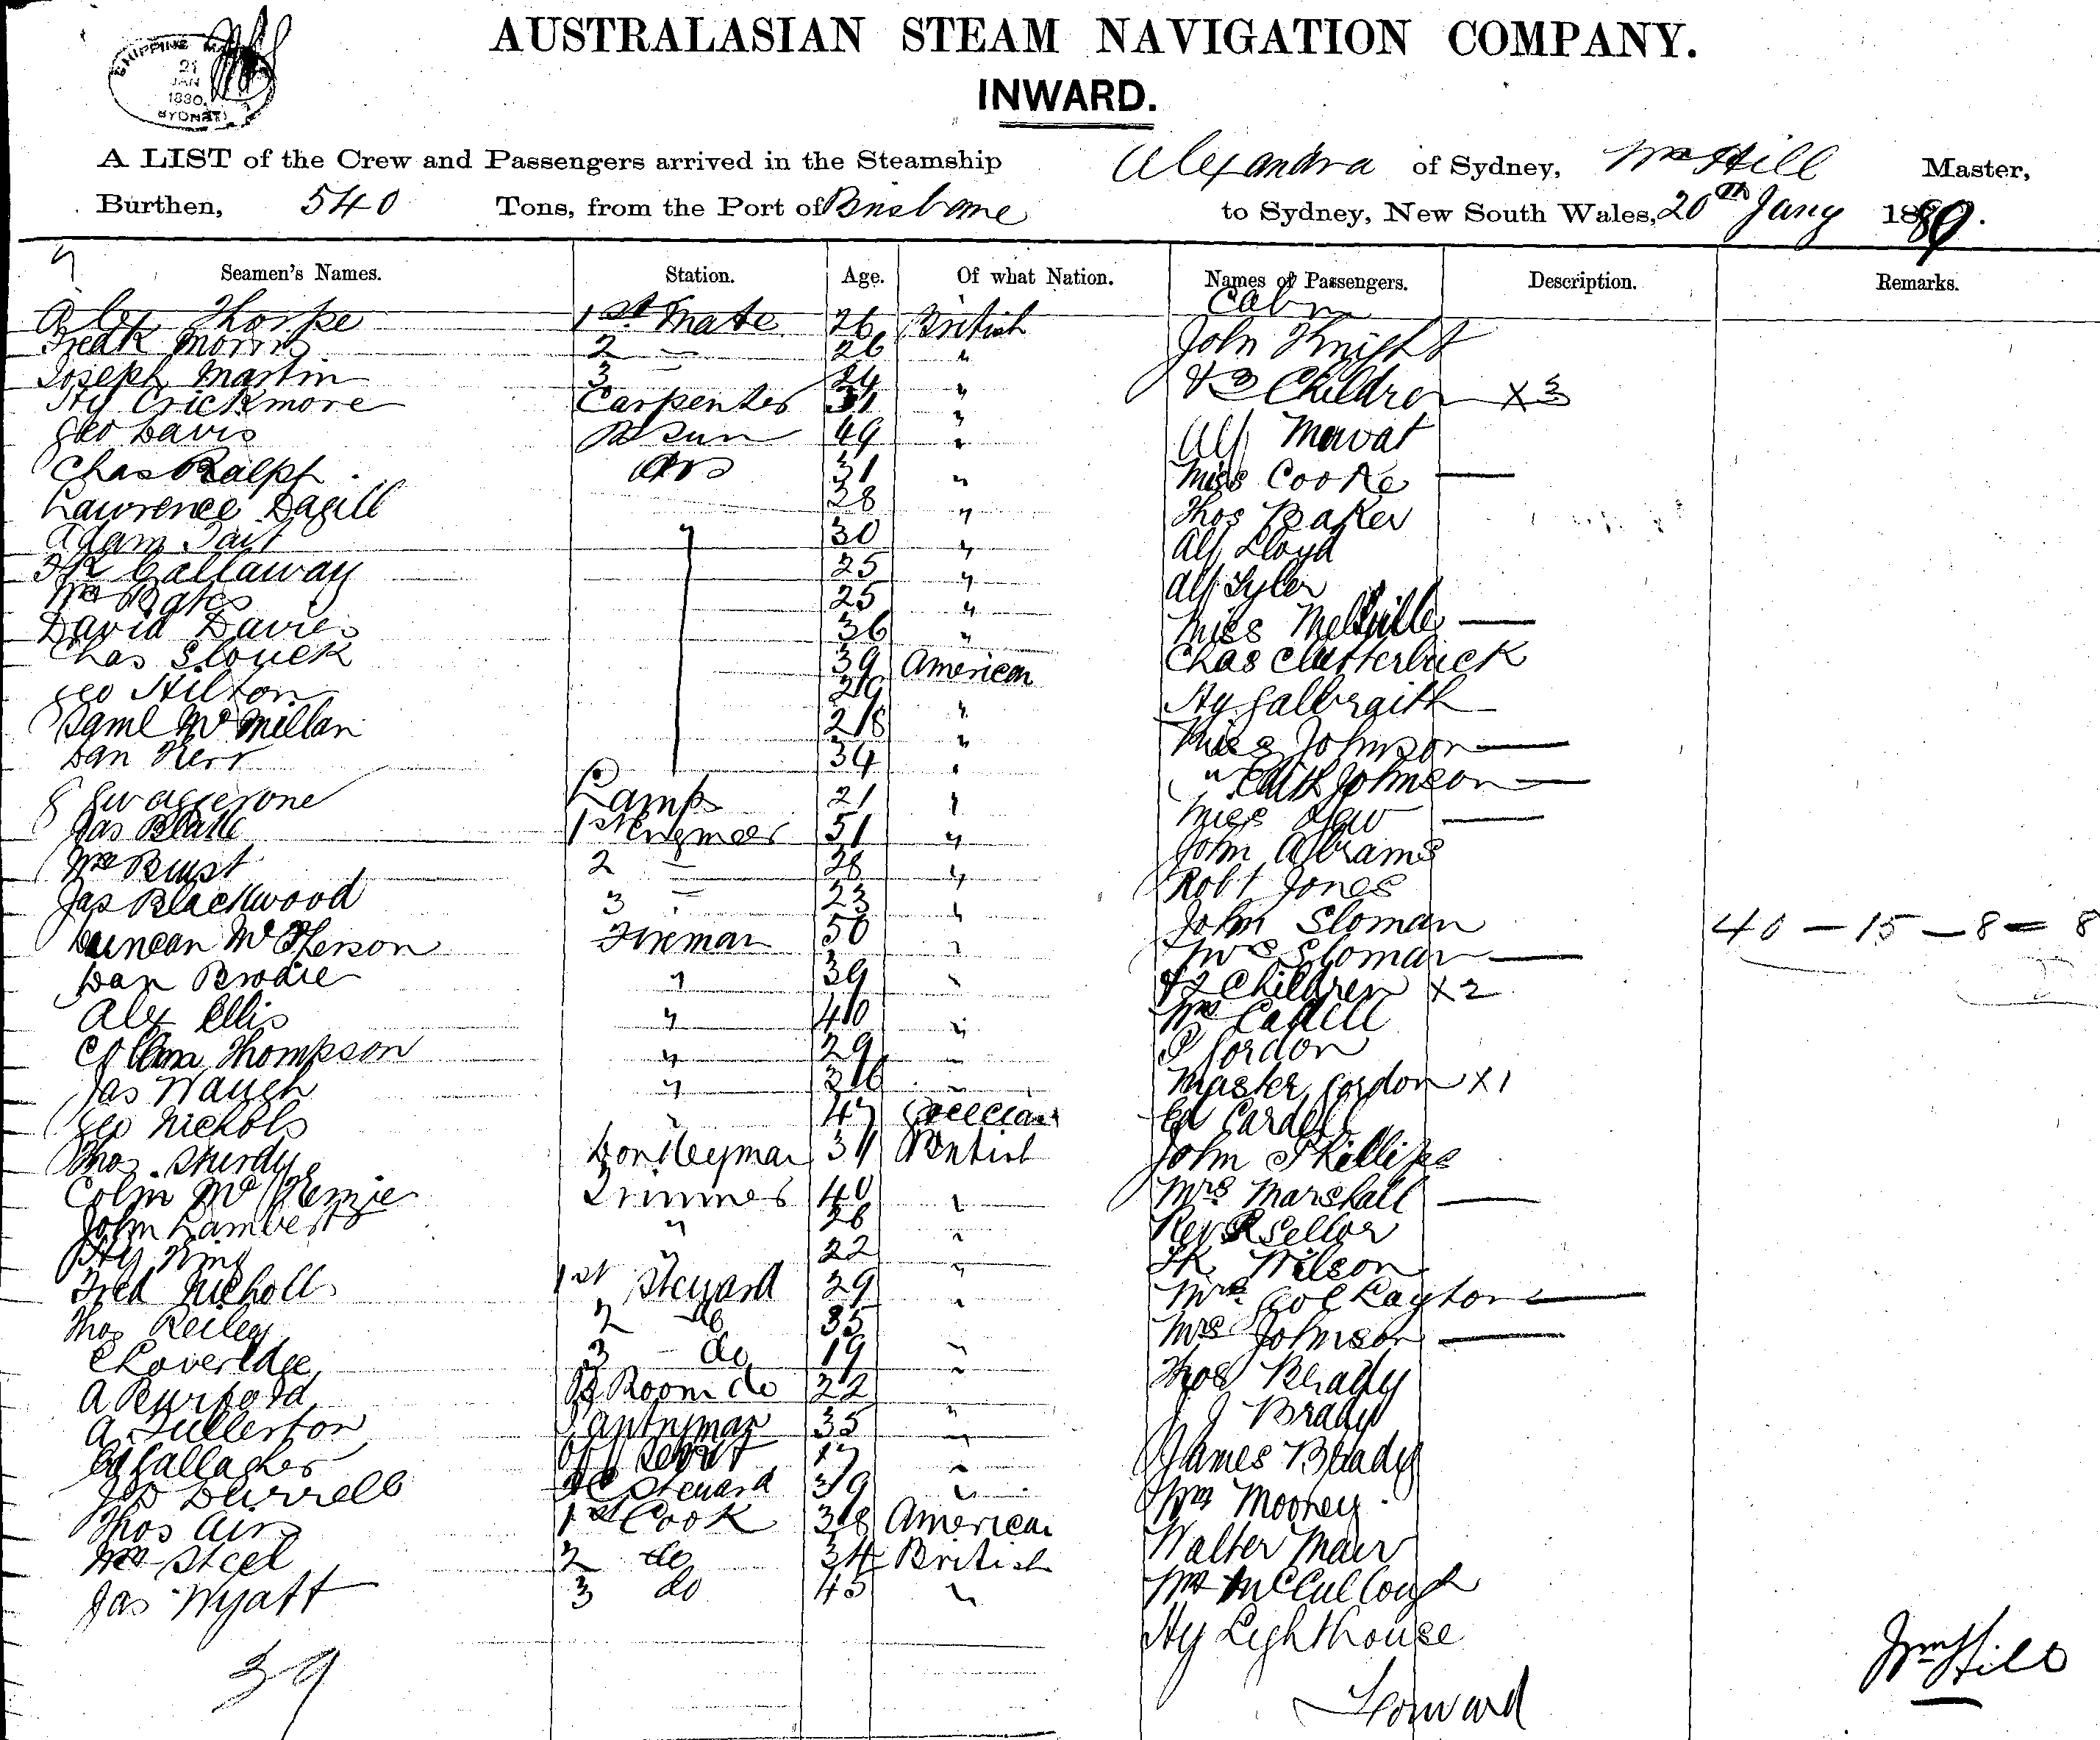 SHIPPING MA
21
JAN
1880
SYDNEY
AUSTRALASIAN STEAM NAVIGATION COMPANY.
INWARD.
A LIST of the Crew and Passengers arrived in the Steamship Alexandra of Sydney, Wm Hill Master,
Burthen, 540 Tons, from the Port of Brisbane to Sydney, New South Wales, 20th Jany 1880.
Seamen's Names. Station. Age. Of what Nation. Names of Passengers. Description. Remarks.
Cabin
Alex Thorpe 1st Mate 26 British John Knight
Fredk Morris 2 — 26 " & 3 Children X 3
Joseph Martin 3 — 24 "
Hy Crickmore Carpenter 31 " Alf Mowat
Geo Davis B Sun 49 " Miss Cooke —
Chas Ralph ABs 31 " Thos Baker
Lawrence Dagill 28 " Alf Lloyd
Adam Tait " 30 " Alf Tyler
Fk Callaway 25 " Miss Melville —
Wm Bates 25 " Chas Clutterbuck
David Davies 36 " Hy Galbraith
Chas Slouck 39 American Miss Johnson —
Geo Hilton 29 " " Edith Johnson —
Saml McMillan 28 " Miss —
Dan Kerr 34 " John Abrams
Lamps 21 " Robt Jones
Jas Blake 1st Engineer 51 " John Sloman 40 — 15 — 8 = 8
Wm Burst 2 — 28 " Mrs Sloman —
Jas Blackwood 3 — 23 " & 2 Children X 2
Duncan McPherson Fireman 50 " Wm Cadell
Dan Brodie " 39 " P Gordon
Alex Ellis " 40 " Master Gordon X 1
Thompson " 29 " Ed Cardell
Jas Waugh " 36 " John Phillips
Geo Nichols " 47 Grecian Mrs Marshall —
Thos Sturdy Donkeyman 31 British Rev R Sellor
Colin McKenzie Trimmer 40 " Fk Wilson
John Lambert " 26 " Mrs Layton —
Hy King " 22 " Mrs Johnson —
Fred Nicholl 1st Steward 29 " Thos Brady
Thos Reiley 2 do 35 " J Brady
C Loveridge 3 — do 19 " James Brady
A Burford B Room do 22 " Wm Mooney
A Fullerton Pantryman 35 " Walter Mair
Ed Gallagher Off Servt 17 " Wm McCullough
Jas Durrell FC Steward 39 " Hy Lighthouse
Thos Air 1st Cook 38 American
Wm Steel 2 do 34 British
Jas Wyatt 3 do 45 "
39
Forward
Wm Hill